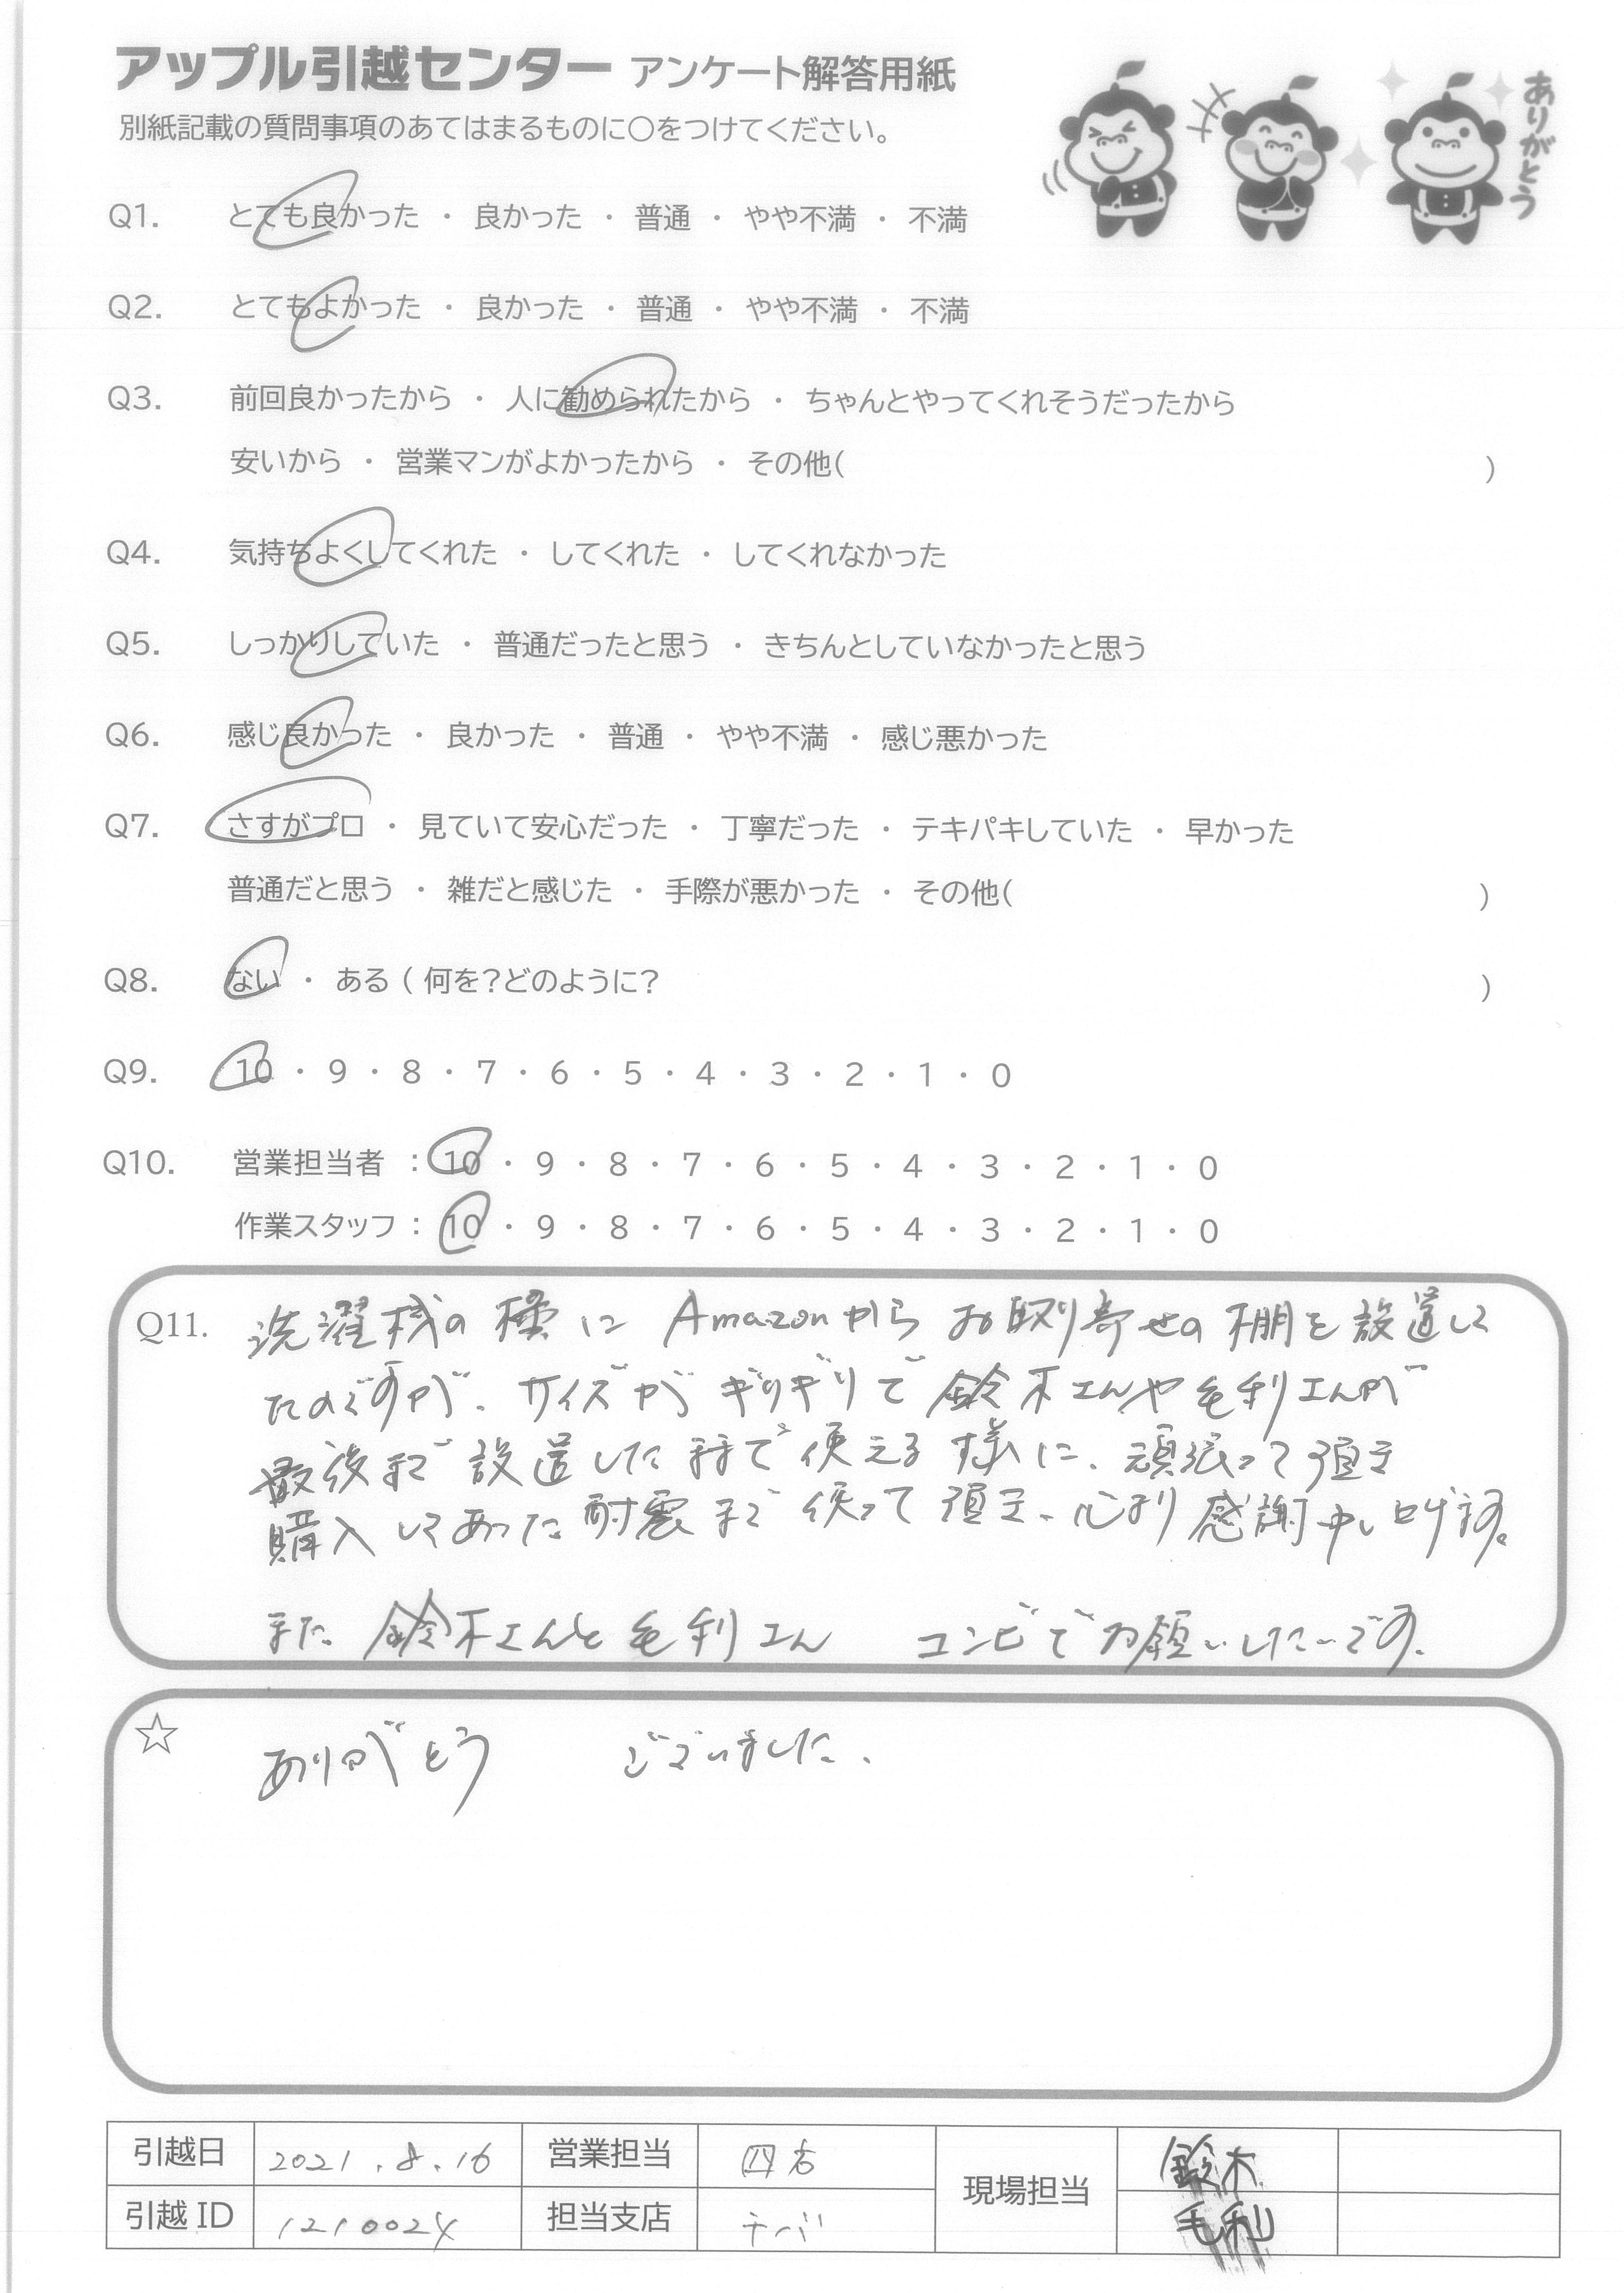 アップル引越センター アンケート解答用紙
別紙記載の質問事項のあてはまるものに○をつけてください。
ありがとう
Q1. とても良かった ・ 良かった ・ 普通 ・ やや不満 ・ 不満
Q2. とてもよかった ・ 良かった ・ 普通 ・ やや不満 ・ 不満
Q3. 前回良かったから ・ 人に勧められたから ・ ちゃんとやってくれそうだったから
安いから ・ 営業マンがよかったから ・ その他( )
Q4. 気持ちよくしてくれた ・ してくれた ・ してくれなかった
Q5. しっかりしていた ・ 普通だったと思う ・ きちんとしていなかったと思う
Q6. 感じ良かった ・ 良かった ・ 普通 ・ やや不満 ・ 感じ悪かった
Q7. さすがプロ ・ 見ていて安心だった ・ 丁寧だった ・ テキパキしていた ・ 早かった
普通だと思う ・ 雑だと感じた ・ 手際が悪かった ・ その他( )
Q8. ない ・ ある ( 何を?どのように? )
Q9. 10 ・ 9 ・ 8 ・ 7 ・ 6 ・ 5 ・ 4 ・ 3 ・ 2 ・ 1 ・ 0
Q10. 営業担当者 : 10 ・ 9 ・ 8 ・ 7 ・ 6 ・ 5 ・ 4 ・ 3 ・ 2 ・ 1 ・ 0
作業スタッフ : 10 ・ 9 ・ 8 ・ 7 ・ 6 ・ 5 ・ 4 ・ 3 ・ 2 ・ 1 ・ 0
Q11. 洗濯機の横に Amazonから お取り寄せの棚を設置して
たのですが、サイズが ギリギリで 鈴木さんや毛利さんが
最後まで 設置したままで 使える様に、頑張って頂き
購入してあった耐震まで 使って頂き、心より感謝申し上げます。
また 鈴木さんと毛利さん コンビで お願いしたいです。
☆ ありがとう ございました.
引越日 2021.8.16 営業担当 現場担当 鈴木
引越ID 1210024 担当支店 チバ 毛利